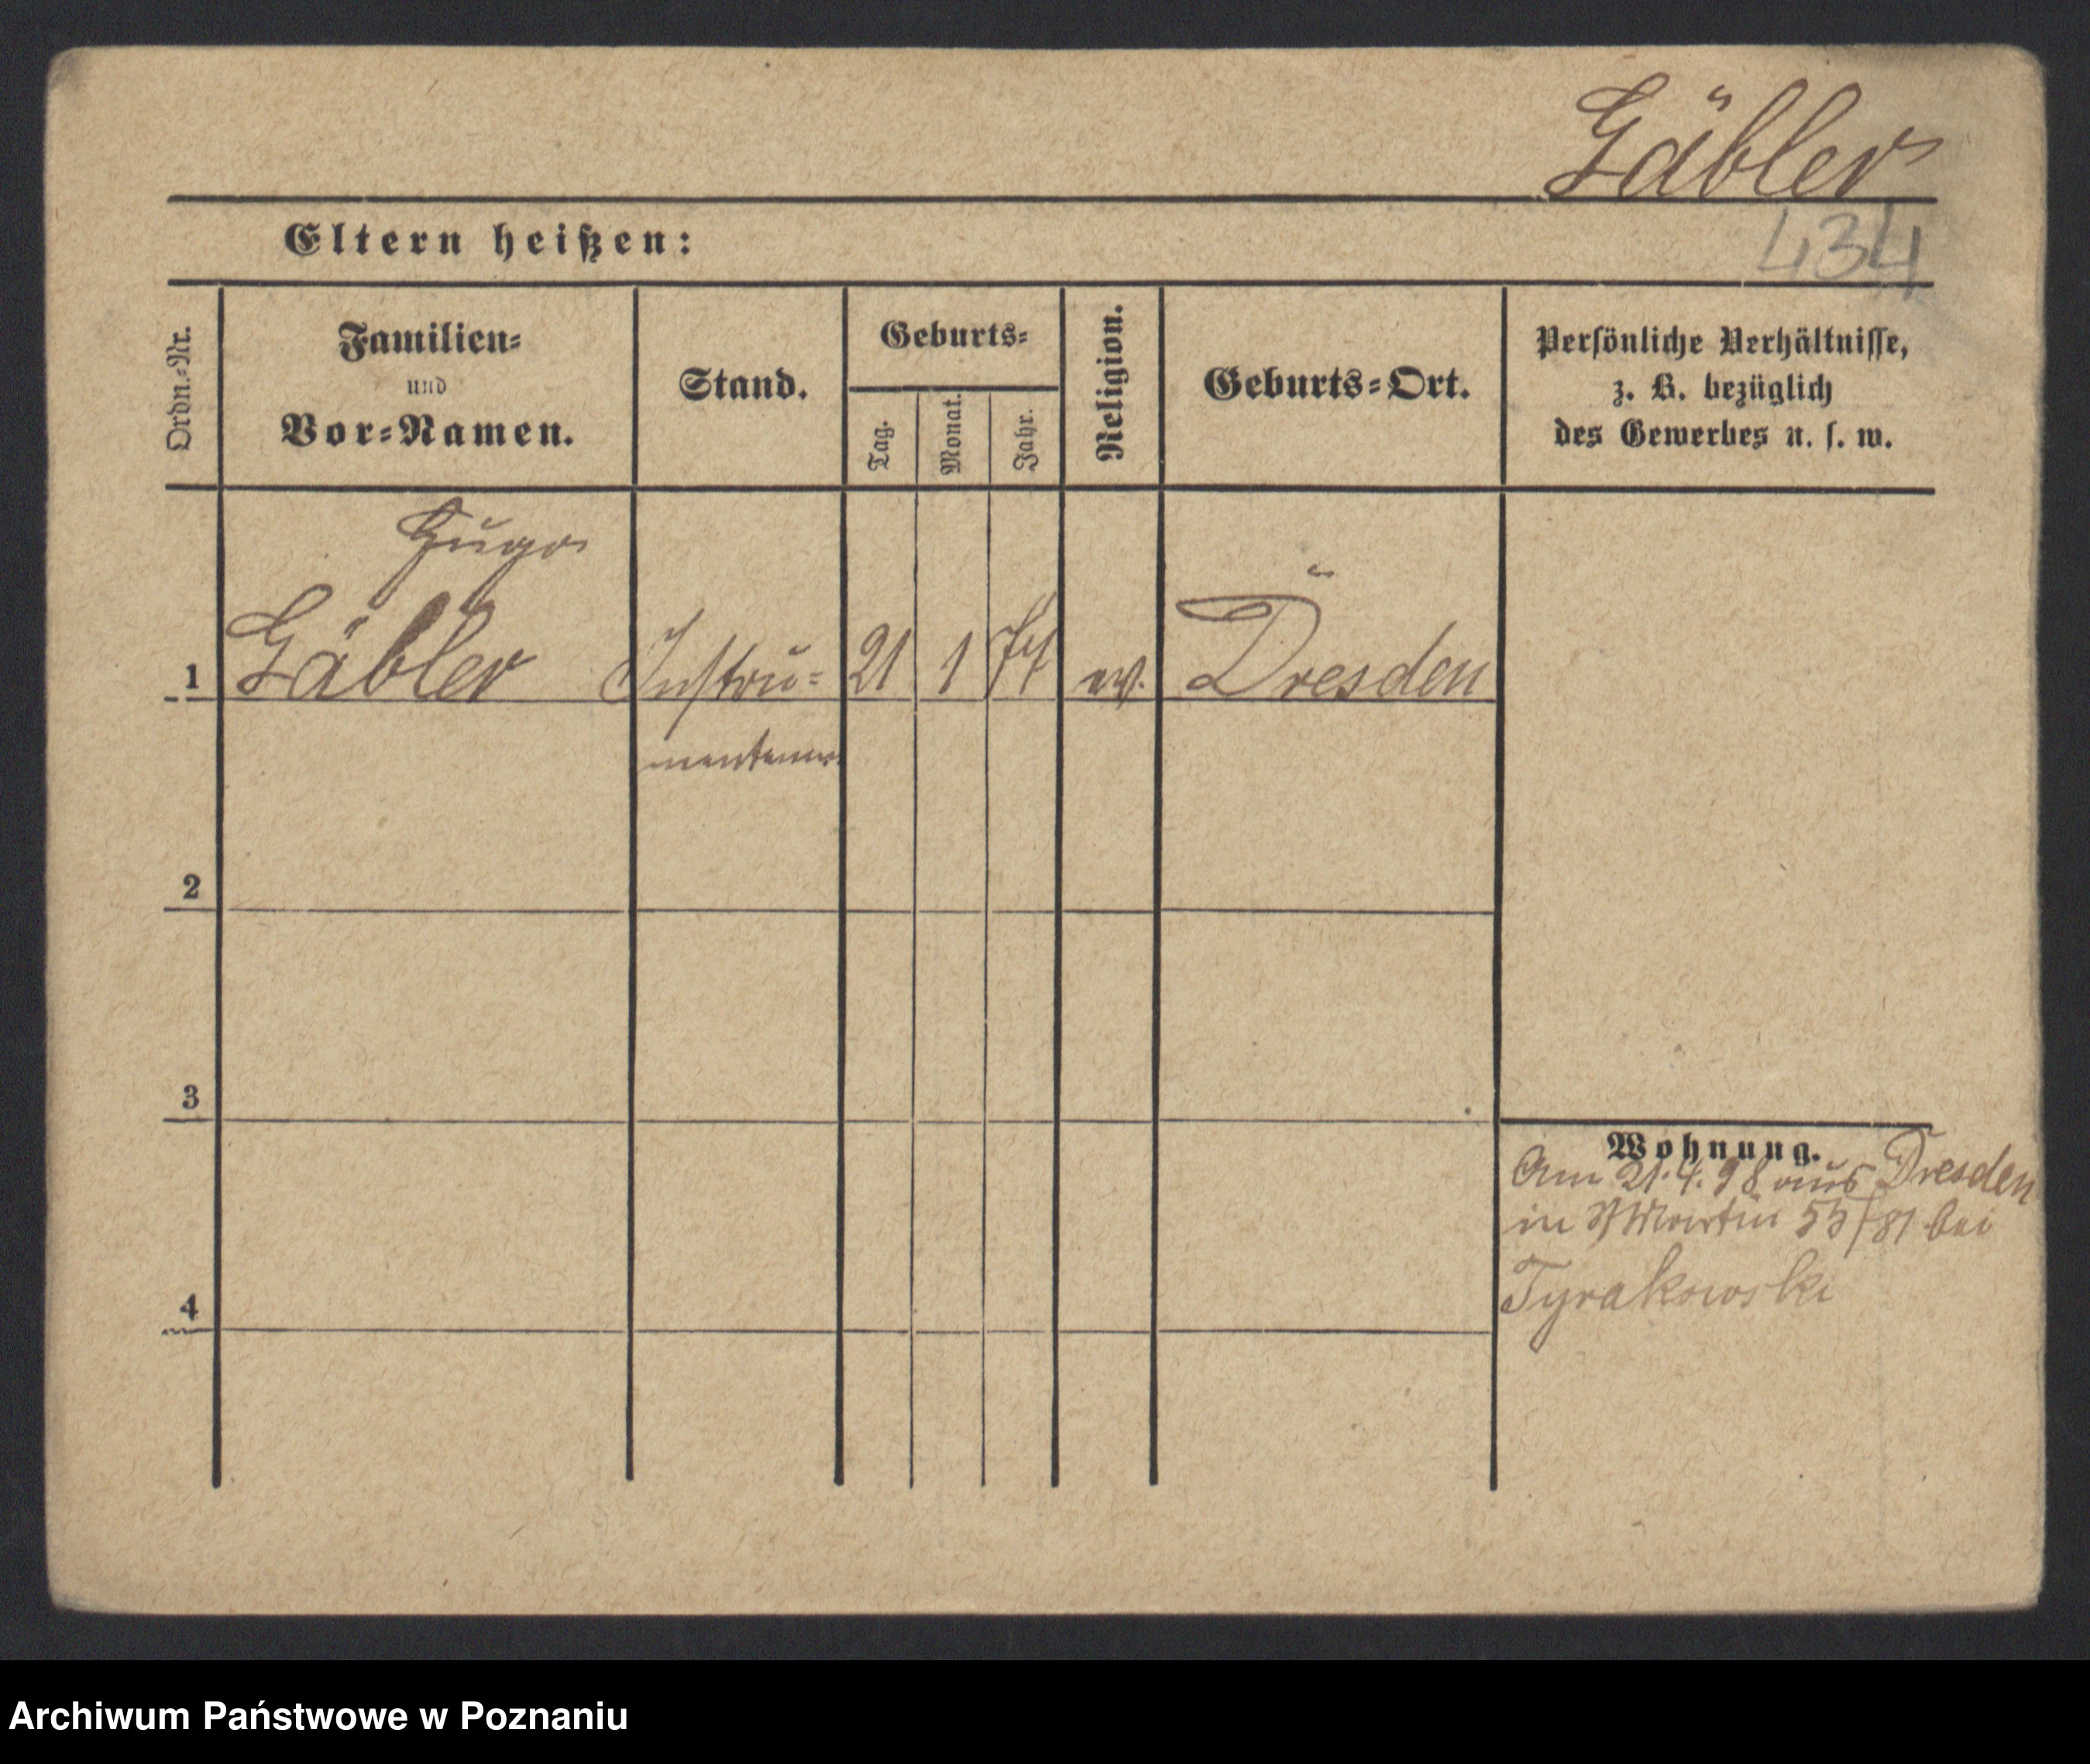 Gäbler
Eltern heißen:
434
Ordn.-Nr.
Familien-
und
Vor-Namen.
Stand.
Geburts-
Tag.
Monat.
Jahr.
Religion.
Geburts-Ort.
Persönliche Verhältnisse,
z. B. bezüglich
des Gewerbes u. s. w.
Hugo
1 Gäbler Instru- 21 1 74 ev. Dresden
2
3
4
Wohnung.
Am 21.4.98 aus Dresden
in St Martin 55/81 bei
Tyrakowski
Archiwum Państwowe w Poznaniu